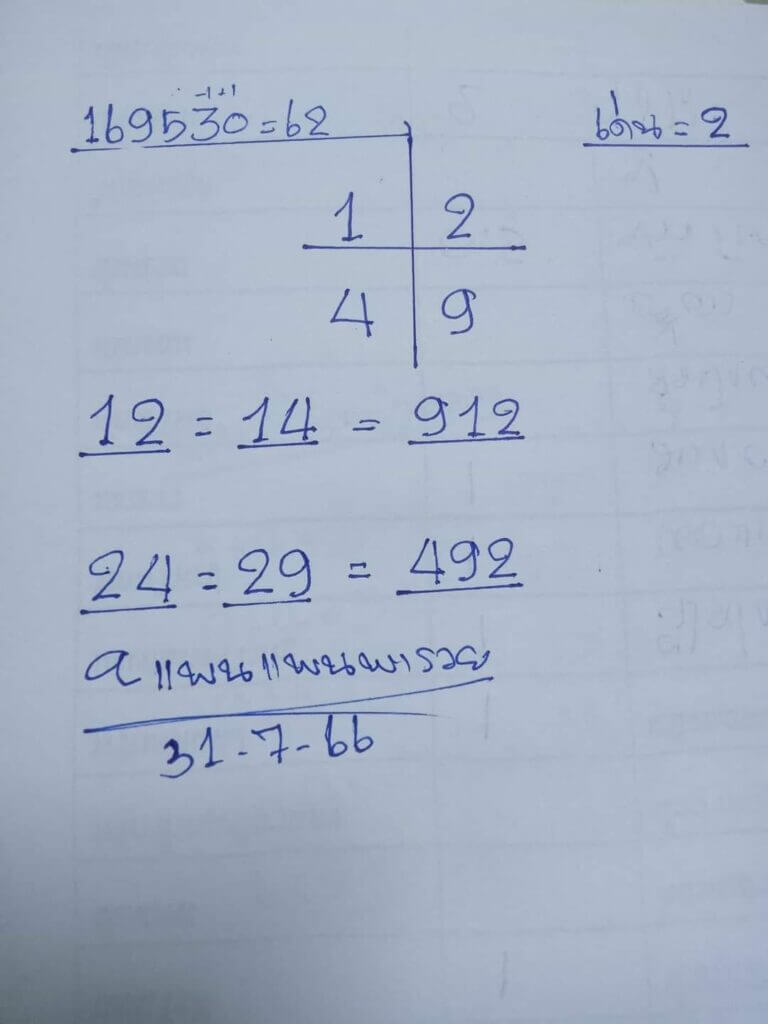 -1+1
169530=62
เด่น=2
1 2
4 9
12 = 14 = 912
24 = 29 = 492
อ แพนแพนพารวย
31-7-66